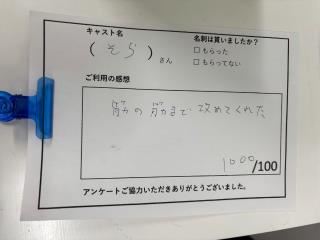 キャスト名
(そら)さん
名刺は貰いましたか?
□ もらった
□ もらってない
ご利用の感想
筋の筋まで攻めてくれた
1000/100
アンケートご協力いただきありがとうございました。